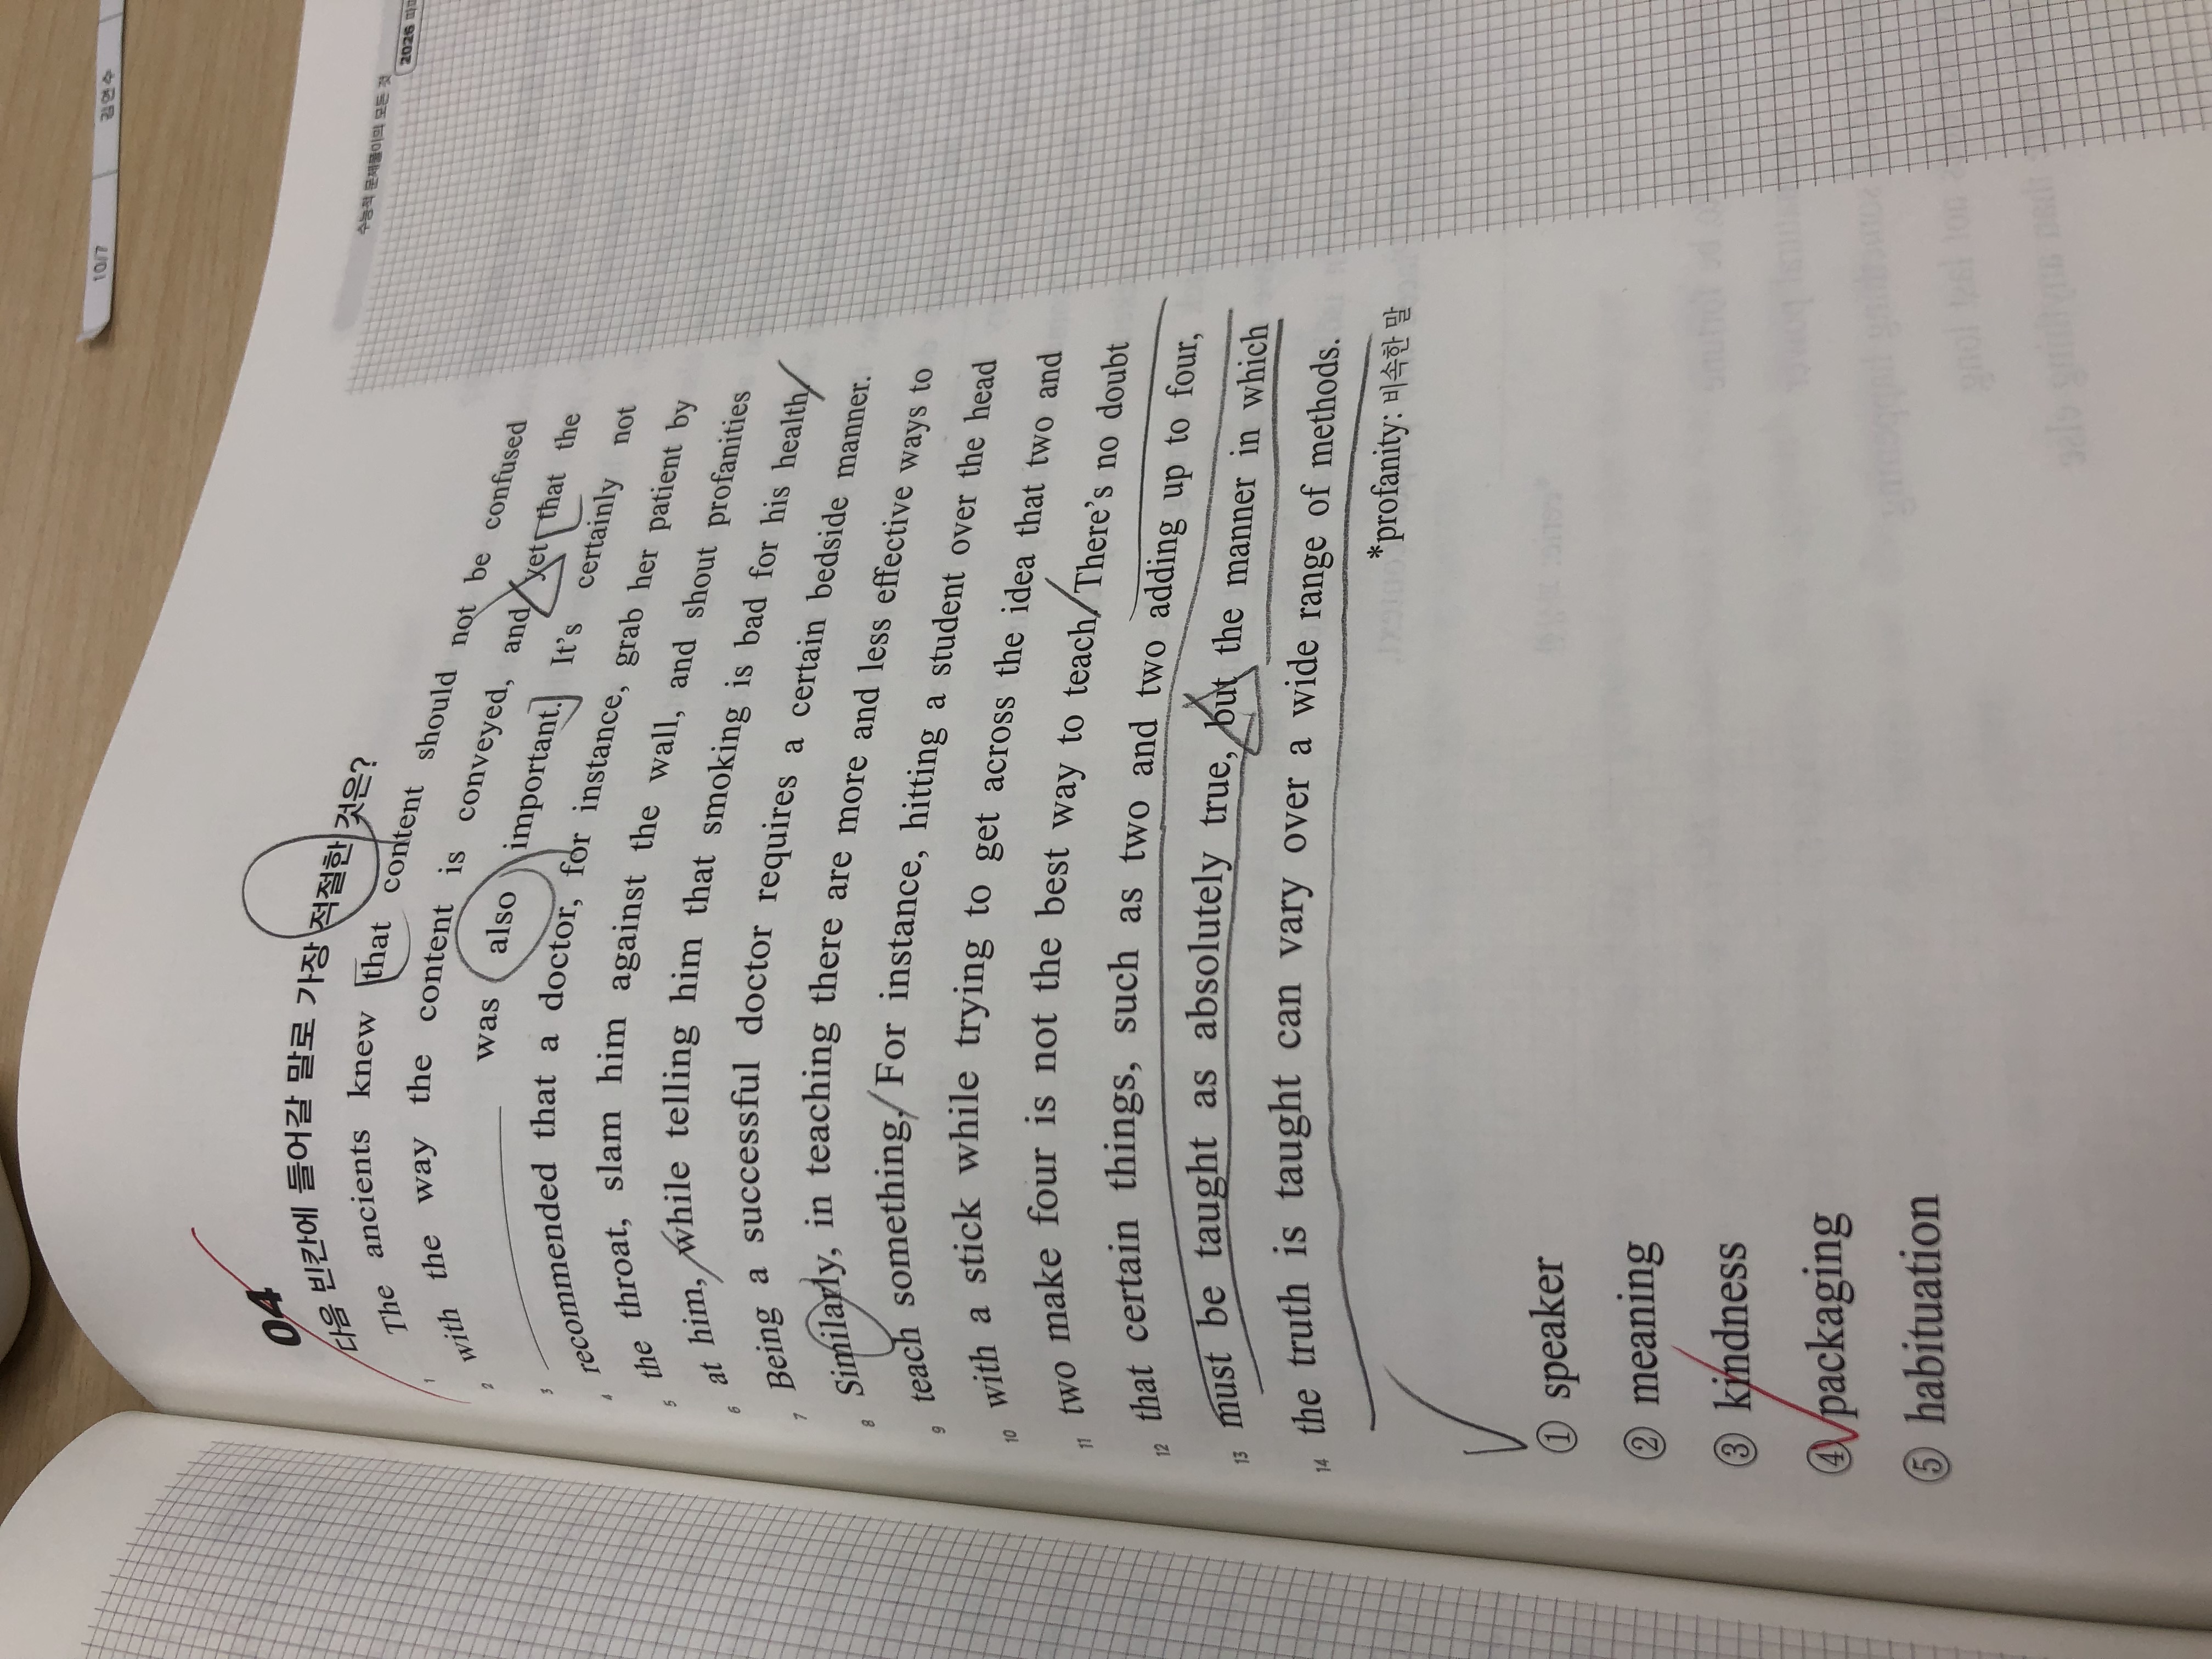 10/7
김연수
수능적 문제풀이의 모든 것
2026
04
다음 빈칸에 들어갈 말로 가장 적절한 것은?
The ancients knew that content should not be confused
1
with the way the content is conveyed, and yet that the
2
was also important. It's certainly not
3
recommended that a doctor, for instance, grab her patient by
4
the throat, slam him against the wall, and shout profanities
5
at him, while telling him that smoking is bad for his health.
6
Being a successful doctor requires a certain bedside manner.
7
Similarly, in teaching there are more and less effective ways to
8
teach something. For instance, hitting a student over the head
9
with a stick while trying to get across the idea that two and
10
two make four is not the best way to teach. There's no doubt
11
that certain things, such as two and two adding up to four,
12
must be taught as absolutely true, but the manner in which
13
the truth is taught can vary over a wide range of methods.
14
*profanity: 비속한 말
① speaker
② meaning
③ kindness
④ packaging
⑤ habituation